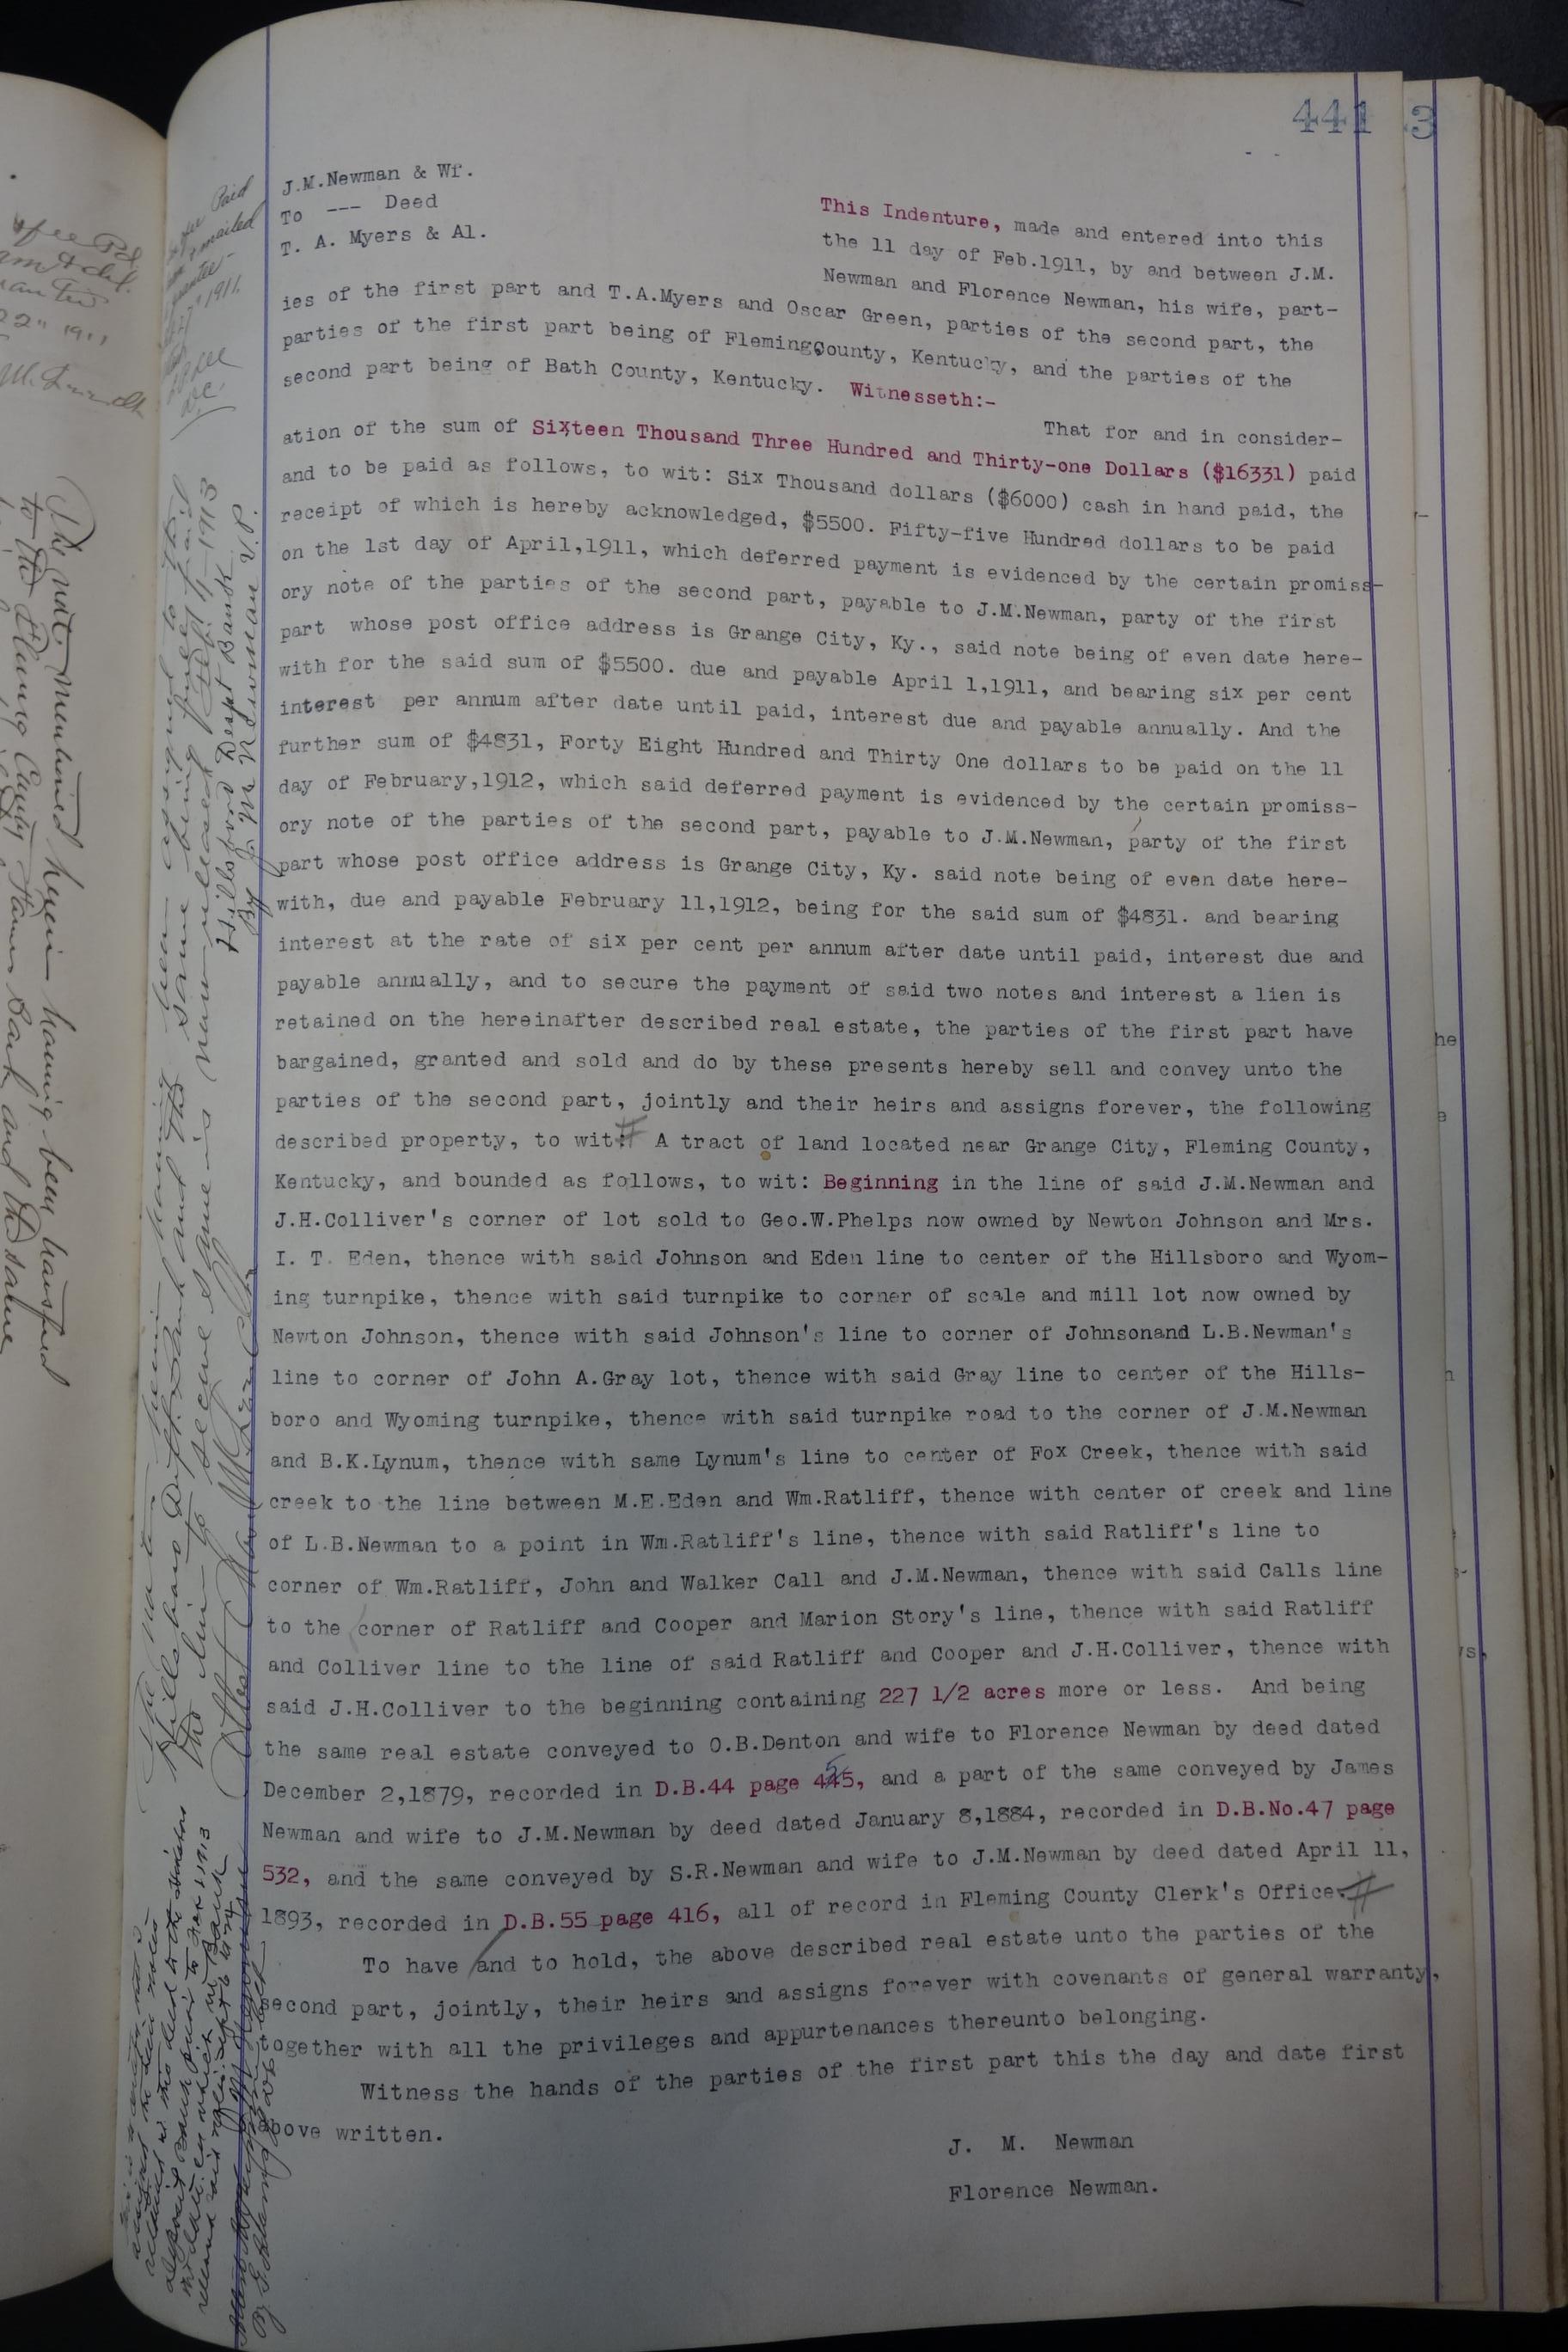 441 3
J.M.Newman & Wf.
To --- Deed
T. A. Myers & Al.
This Indenture, made and entered into this
the 11 day of Feb.1911, by and between J.M.
Newman and Florence Newman, his wife, part-
ies of the first part and T.A.Myers and Oscar Green, parties of the second part, the
parties of the first part being of Flemingcounty, Kentucky, and the parties of the
second part being of Bath County, Kentucky. Witnesseth:-
That for and in consider-
ation of the sum of Sixteen Thousand Three Hundred and Thirty-one Dollars ($16331) paid
and to be paid as follows, to wit: Six Thousand dollars ($6000) cash in hand paid, the
receipt of which is hereby acknowledged, $5500. Fifty-five Hundred dollars to be paid
on the 1st day of April,1911, which deferred payment is evidenced by the certain promiss-
ory note of the parties of the second part, payable to J.M.Newman, party of the first
part whose post office address is Grange City, Ky., said note being of even date here-
with for the said sum of $5500. due and payable April 1,1911, and bearing six per cent
interest per annum after date until paid, interest due and payable annually. And the
further sum of $4831, Forty Eight Hundred and Thirty One dollars to be paid on the 11
day of February,1912, which said deferred payment is evidenced by the certain promiss-
ory note of the parties of the second part, payable to J.M.Newman, party of the first
part whose post office address is Grange City, Ky. said note being of even date here-
with, due and payable February 11,1912, being for the said sum of $4831. and bearing
interest at the rate of six per cent per annum after date until paid, interest due and
payable annually, and to secure the payment of said two notes and interest a lien is
retained on the hereinafter described real estate, the parties of the first part have
bargained, granted and sold and do by these presents hereby sell and convey unto the
parties of the second part, jointly and their heirs and assigns forever, the following
described property, to wit:# A tract of land located near Grange City, Fleming County,
Kentucky, and bounded as follows, to wit: Beginning in the line of said J.M.Newman and
J.H.Colliver's corner of lot sold to Geo.W.Phelps now owned by Newton Johnson and Mrs.
I. T. Eden, thence with said Johnson and Eden line to center of the Hillsboro and Wyom-
ing turnpike, thence with said turnpike to corner of scale and mill lot now owned by
Newton Johnson, thence with said Johnson's line to corner of Johnsonand L.B.Newman's
line to corner of John A.Gray lot, thence with said Gray line to center of the Hills-
boro and Wyoming turnpike, thence with said turnpike road to the corner of J.M.Newman
and B.K.Lynum, thence with same Lynum's line to center of Fox Creek, thence with said
creek to the line between M.E.Eden and Wm.Ratliff, thence with center of creek and line
of L.B.Newman to a point in Wm.Ratliff's line, thence with said Ratliff's line to
corner of Wm.Ratliff, John and Walker Call and J.M.Newman, thence with said Calls line
to the corner of Ratliff and Cooper and Marion Story's line, thence with said Ratliff
and Colliver line to the line of said Ratliff and Cooper and J.H.Colliver, thence with
said J.H.Colliver to the beginning containing 227 1/2 acres more or less. And being
the same real estate conveyed to O.B.Denton and wife to Florence Newman by deed dated
December 2,1879, recorded in D.B.44 page 425, and a part of the same conveyed by James
Newman and wife to J.M.Newman by deed dated January 8,1884, recorded in D.B.No.47 page
532, and the same conveyed by S.R.Newman and wife to J.M.Newman by deed dated April 11,
1893, recorded in D.B.55 page 416, all of record in Fleming County Clerk's Office.#
To have and to hold, the above described real estate unto the parties of the
second part, jointly, their heirs and assigns forever with covenants of general warranty,
together with all the privileges and appurtenances thereunto belonging.
Witness the hands of the parties of the first part this the day and date first
above written.
J. M. Newman
Florence Newman.
Paid
mailed
1911.
The note mentioned herein having been
to the Fleming County Farmers Bank and the same
The note herein having been assigned to the
Hillsboro Deposit Bank and the same being paid
the lien to secure same is now released Sept 4-1913
Hillsboro Deposit Bank
By J M Newman V.P.